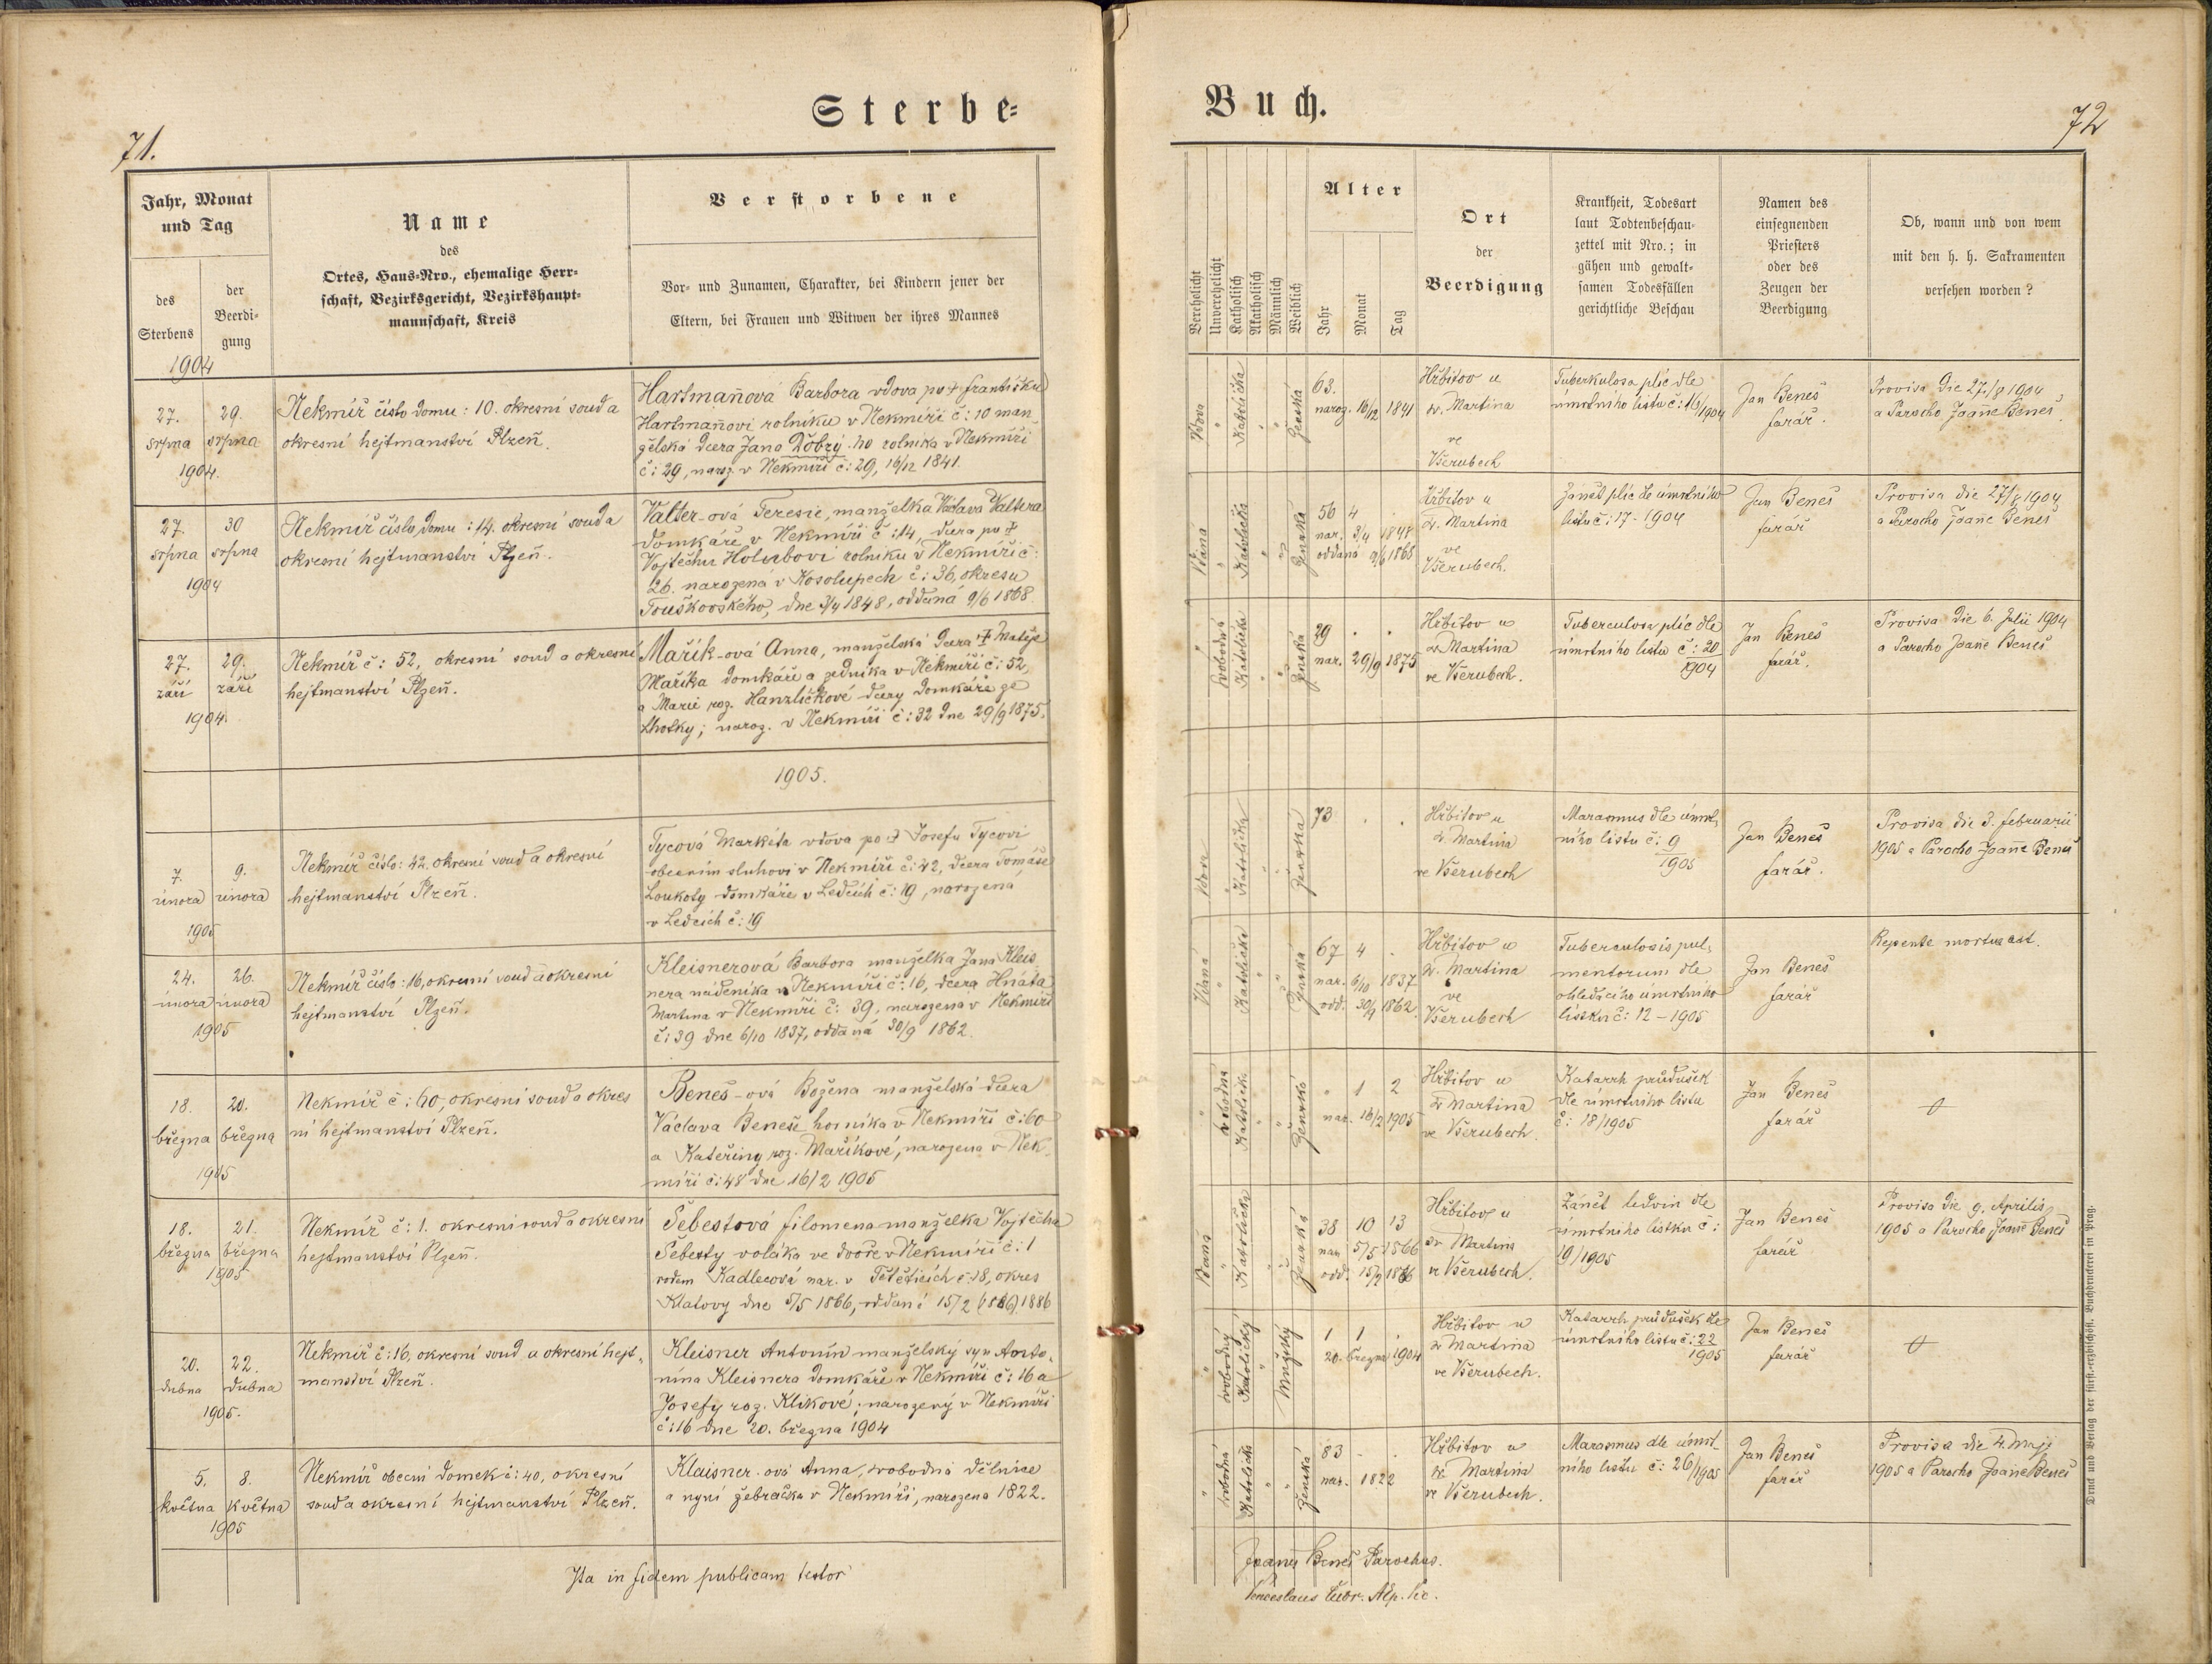 Sterbe=
71.
Jahr, Monat
und Tag
des
Sterbens
der
Beerdi-
gung
Name
des
Ortes, Haus-Nro., ehemalige Herr-
schaft, Bezirksgericht, Bezirkshaupt-
mannschaft, Kreis
Verstorbene
Vor- und Zunamen, Charakter, bei Kindern jener der
Eltern, bei Frauen und Witwen der ihres Mannes
1904
27. 29.
srpna srpna
1904.
Nekmíř číslo domu: 10. okresní soud a
okresní hejtmanství Plzeň.
Hartmaňová Barbora vdova po † Františku
Hartmaňovi rolníku v Nekmíři č: 10 man
želská dcera Jana Dobrý-ho rolníka v Nekmíři
č: 29, naroz. v Nekmíři č: 29, 16/12 1841.
27. 30
srpna srpna
1904
Nekmíř číslo domu: 14. okresní soud a
okresní hejtmanství Plzeň.
Valter-ová Teresie, manželka Václava Valtera
domkáře v Nekmíři č: 14, dcera po †
Vojtěchu Holubovi rolníku v Nekmíři č:
26. narozená v Kosolupech č: 36, okresu
Touškovského, dne 3/4 1848, oddaná 9/6 1868
27. 29.
září září
1904.
Nekmíř č: 52, okresní soud a okresní
hejtmanství Plzeň.
Mařík-ová Anna, manželská dcera † Matěje
Maříka domkáře a zedníka v Nekmíři č: 52,
a Marie roz. Hanzlíčkové dcery domkáře ze
Lhotky; naroz. v Nekmíři č: 32 dne 29/9 1875.
1905.
7. 9.
února února
1905
Nekmíř číslo: 42. okresní soud a okresní
hejtmanství Plzeň.
Tycová Markéta vdova po † Josefu Tycovi
obecním sluhovi v Nekmíři č: 42, dcera Tomáše
Loukoty domkáře v Ledcích č: 19, narozena
v Ledcích č: 19
24. 26.
února února
1905
Nekmíř číslo: 16, okresní soud a okresní
hejtmanství Plzeň.
Kleisnerová Barbora manželka Jana Kleis
nera nádeníka v Nekmíři č: 16, dcera Hnáta
Martina v Nekmíři č: 39, narozena v Nekmíři
č: 39 dne 6/10 1837, oddaná 30/9 1862.
18. 20.
března března
1905
Nekmíř č: 60, okresní soud a okres
ní hejtmanství Plzeň.
Beneš-ová Božena manželská dcera
Václava Beneše horníka v Nekmíři č: 60
a Kateřiny roz. Maříkové, narozena v Nek-
míři č: 48 dne 16/2 1905
18. 21.
března března
1905
Nekmíř č: 1. okresní soud a okresní
hejtmanství Plzeň.
Šebestová Filomena manželka Vojtěcha
Šebesty voláka ve dvoře v Nekmíři č: 1
rodem Kadlecová nar. v Těšeticích č: 18, okres
Klatovy dne 5/5 1866, oddaná 15/2 (1886) 1886
20. 22.
dubna dubna
1905.
Nekmíř č: 16, okresní soud a okresní hejt-
manství Plzeň.
Kleisner Antonín manželský syn Anto-
nína Kleisnera domkáře v Nekmíři č: 16 a
Josefy roz. Klikové; narozený v Nekmíři
č: 16 dne 20. března 1904
5. 8.
května května
1905
Nekmíř obecní domek č: 40, okresní
soud a okresní hejtmanství Plzeň.
Klaisner-ová Anna, svobodná dělnice
a nyní žebračka v Nekmíři, narozena 1822.
Ita in fidem publicam testor
Buch.
72
Verehelicht
Unverehelicht
Katholisch
Akatholisch
Männlich
Weiblich
Alter
Jahr
Monat
Tag
Ort
der
Beerdigung
Krankheit, Todesart
laut Todtenbeschau-
zettel mit Nro.; in
gähen und gewalt-
samen Todesfällen
gerichtliche Beschau
Namen des
einsegnenden
Priesters
oder des
Zeugen der
Beerdigung
Ob, wann und von wem
mit den h. h. Sakramenten
versehen worden?
Vdova
Katolička
Ženská
63.
naroz. 16/12 1841
Hřbitov u
sv. Martina
ve
Všerubech
Tuberkulosa plic dle
úmrtního listu č: 16/1904
Jan Beneš
farář.
Provisa die 27./8 1904
a Parocho Joanne Beneš.
Vdaná
Katolička
Ženská
56 4
nar. 3/4 1848
oddaná 9/6 1868
Hřbitov u
sv. Martina
ve
Všerubech.
Zánět plic dle úmrtního
listu č: 17-1904
Jan Beneš
farář
Provisa die 27/8 1904
a Parocho Joanne Beneš
Svobodná
Katolička
Ženská
29 . .
nar. 29/9 1875
Hřbitov u
sv Martina
ve Všerubech.
Tuberculosa plic dle
úmrtního listu č: 20
1904
Jan Beneš
farář.
Provisa die 6. Julii 1904
a Parocho Joanne Beneš
Vdova
Katolička
Ženská
73 . .
Hřbitov u
sv. Martina
ve Všerubech
Marasmus dle úmrt-
ního listu č: 9
1905
Jan Beneš
farář.
Provisa die 3. februarii
1905 a Parocho Joanne Beneš
Vdaná
Katolička
Ženská
67 4 .
nar. 6/10 1837
odd. 30/9 1862.
Hřbitov u
sv. Martina
ve
Všerubech
Tuberculosis pul-
mentorum dle
ohledacího úmrtního
lístku č: 12-1905
Jan Beneš
farář
Repente mortua est.
svobodná
Katolička
Ženská
" 1 2
nar. 16/2 1905
Hřbitov u
sv Martina
ve Všerubech.
Katarrh průdušek
dle úmrtního listu
č: 18/1905
Jan Beneš
farář
Vdaná
Katolička
Ženská
38 10 13
nar. 5/5 1866
odd. 15/2 1886
Hřbitov u
sv Martina
ve Všerubech.
Zánět ledvin dle
úmrtního lístku č:
19/1905
Jan Beneš
farář
Provisa die 9. Aprilis
1905 a Parocho Joanne Beneš
svobodný
Katolický
Mužský
1 1 .
20. března 1904
Hřbitov u
sv Martina
ve Všerubech.
Katarrh průdušek dle
úmrtního listu č: 22
1905
Jan Beneš
farář
svobodná
Katolička
Ženská
83 - .
nar. 1822
Hřbitov u
sv Martina
ve Všerubech.
Marasmus dle úmrt-
ního listu č: 26/1905
Jan Beneš
farář
Provisa die 4. Maji
1905 a Parocho Joanne Beneš
Joannes Beneš Parochus.
Druck und Verlag der fürst.-erzbischöfl. Buchdruckerei in Prag.